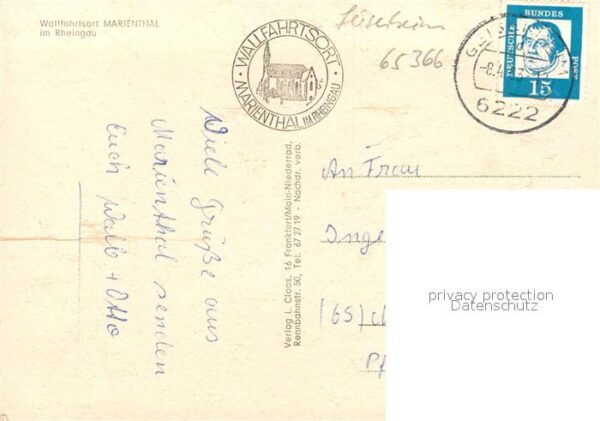 Wallfahrtsort MARIENTHAL
im Rheingau
· WALLFAHRTSORT ·
MARIENTHAL IM RHEINGAU
65366
GEISENHEIM
-8.4.
6222
DEUTSCHE BUNDESPOST
15
Viele Grüße aus
Marienthal senden
Euch Walb + Otto
Verlag L. Claas, 16 Frankfurt/Main-Niederrad,
Rennbahnstr. 50, Tel. 672719 - Nachdr. verb.
An Frau
Inge
(65)
privacy protection
Datenschutz